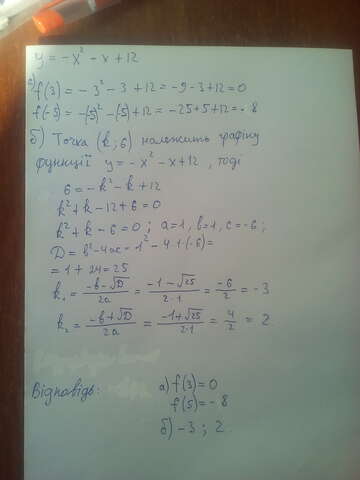 y = -x² - x + 12
а) f(3) = -3² - 3 + 12 = -9 - 3 + 12 = 0
f(-5) = -(-5)² - (-5) + 12 = -25 + 5 + 12 = -8
б) Точка (k; 6) належить графіку
функції y = -x² - x + 12, тоді
6 = -k² - k + 12
k² + k - 12 + 6 = 0
k² + k - 6 = 0; a = 1, b = 1, c = -6;
D = b² - 4ac = 1² - 4·1·(-6) =
= 1 + 24 = 25
k₁ = (-b - √D)/2a = (-1 - √25)/2·1 = -6/2 = -3
k₂ = (-b + √D)/2a = (-1 + √25)/2·1 = 4/2 = 2
Відповідь: а) f(3) = 0
f(5) = -8
б) -3; 2